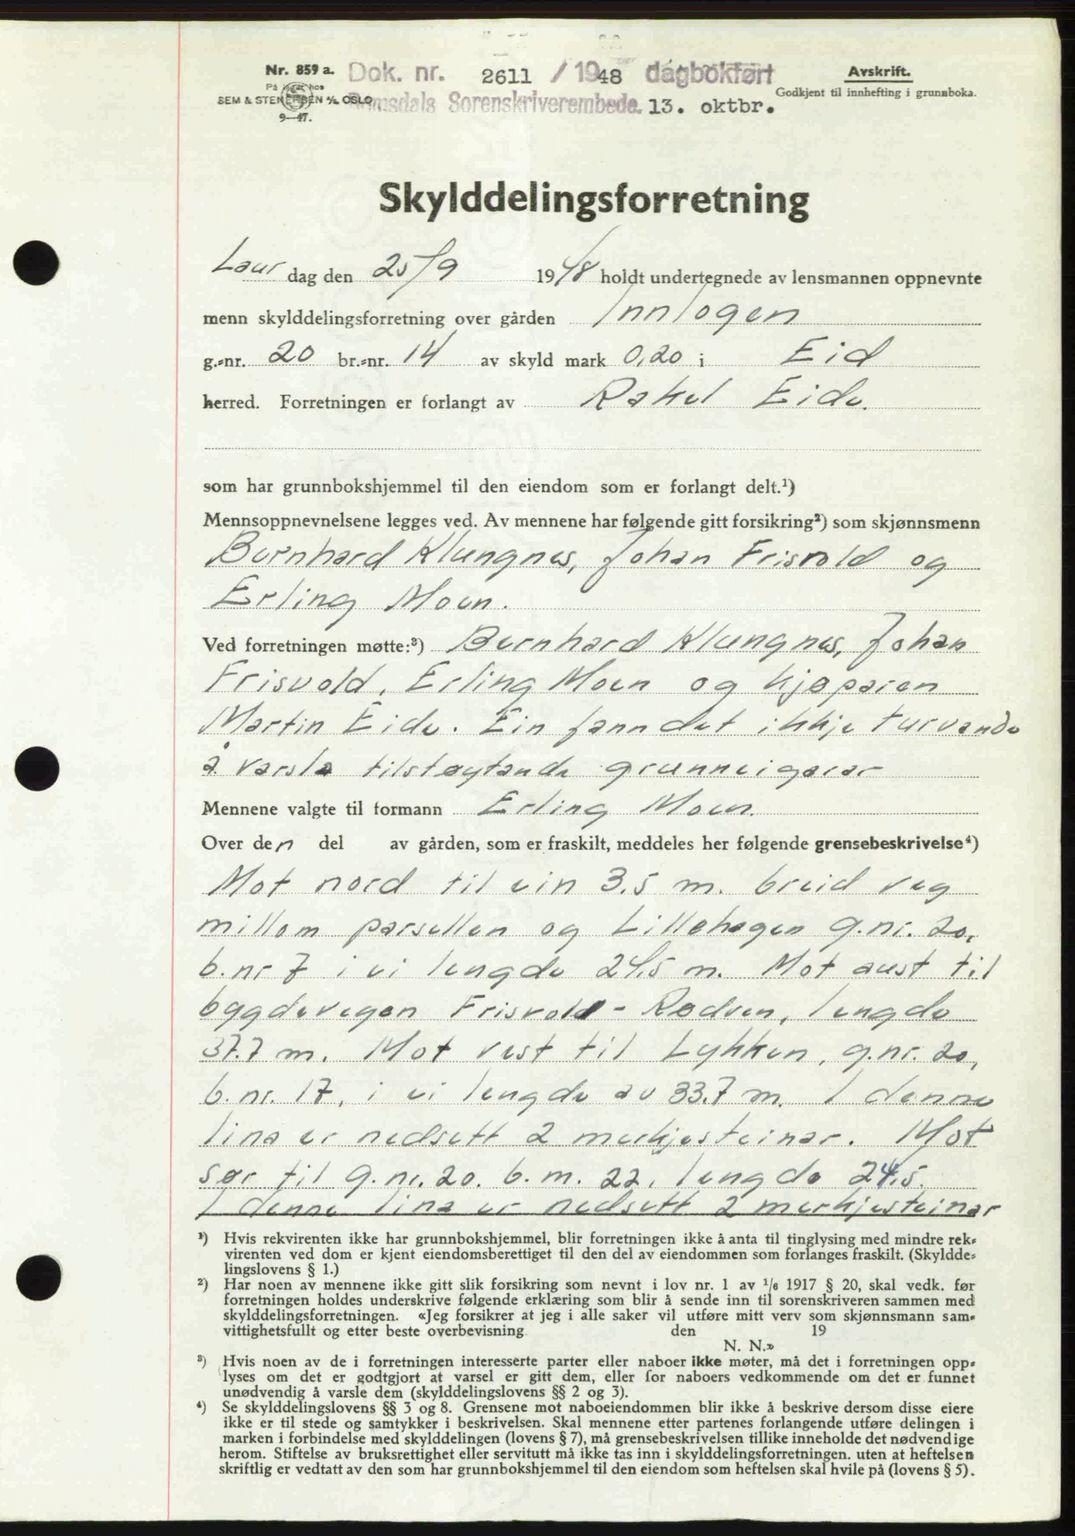 Nr. 859 a. Dok. nr. 2611 / 1948 dagbokført Avskrift.
På lager hos Godkjent til innhefting i grunnboka.
SEM & STENERSEN A/S OSLO. Romsdals Sorenskriverembede. 13. oktbr.
9—47.
Skylddelingsforretning
Laur dag den 25/9 1948 holdt undertegnede av lensmannen oppnevnte
menn skylddelingsforretning over gården Innlogen
g.-nr. 20 br.-nr. 14 av skyld mark 0,20 i Eid
herred. Forretningen er forlangt av Rakel Eide.
som har grunnbokshjemmel til den eiendom som er forlangt delt.¹)
Mennsoppnevnelsene legges ved. Av mennene har følgende gitt forsikring²) som skjønnsmenn
Bernhard Klungnes, Johan Frisvold og
Erling Moen.
Ved forretningen møtte:³) Bernhard Klungnes, Johan
Frisvold, Erling Moen og kjøparen
Martin Eide. Ein fann det ikkje turvande
å varsla tilstøytande grunneigarar
Mennene valgte til formann Erling Moen.
Over den del av gården, som er fraskilt, meddeles her følgende grensebeskrivelse⁴)
Mot nord til ein 3.5 m. breid veg
millom parsellen og Lillehagen g.nr. 20,
b.nr 7 i ei lengde 24,5 m. Mot aust til
bygdevegen Frisvold - Rødven, lengde
37.7 m. Mot vest til Lykken, g.nr. 20,
b.nr. 17, i ei lengde av 33.7 m. I denne
lina er nedsett 2 merkjesteinar. Mot
sør til g.nr. 20. b.nr. 22, lengde 24,5.
I denne lina er nedsett 2 merkjesteinar
¹) Hvis rekvirenten ikke har grunnbokshjemmel, blir forretningen ikke å anta til tinglysing med mindre rek-
virenten ved dom er kjent eiendomsberettiget til den del av eiendommen som forlanges fraskilt. (Skyldde-
lingslovens § 1.)
²) Har noen av mennene ikke gitt slik forsikring som nevnt i lov nr. 1 av 1/6 1917 § 20, skal vedk. før
forretningen holdes underskrive følgende erklæring som blir å sende inn til sorenskriveren sammen med
skylddelingsforretningen. «Jeg forsikrer at jeg i alle saker vil utføre mitt verv som skjønnsmann sam-
vittighetsfullt og etter beste overbevisning den 19
N. N.»
³) Hvis noen av de i forretningen interesserte parter eller naboer ikke møter, må det i forretningen opp-
lyses om det er godtgjort at varsel er gitt dem, eller for naboers vedkommende om det er funnet
unødvendig å varsle dem (skylddelingslovens §§ 2 og 3).
⁴) Se skylddelingslovens §§ 3 og 8. Grensene mot naboeiendommen blir ikke å beskrive dersom disse eiere
ikke er til stede og samtykker i beskrivelsen. Skal mennene etter partenes forlangende utføre delingen i
marken i forbindelse med skylddelingen (lovens § 7), må grensebeskrivelsen tillike inneholde det nødvendige
herom. Stiftelse av bruksrettighet eller servitutt må ikke tas inn i skylddelingsforretningen. uten at heftelsen
skriftlig er vedtatt av den som har grunnbokshjemmel til den eiendom som heftelsen skal hvile på (lovens § 5).